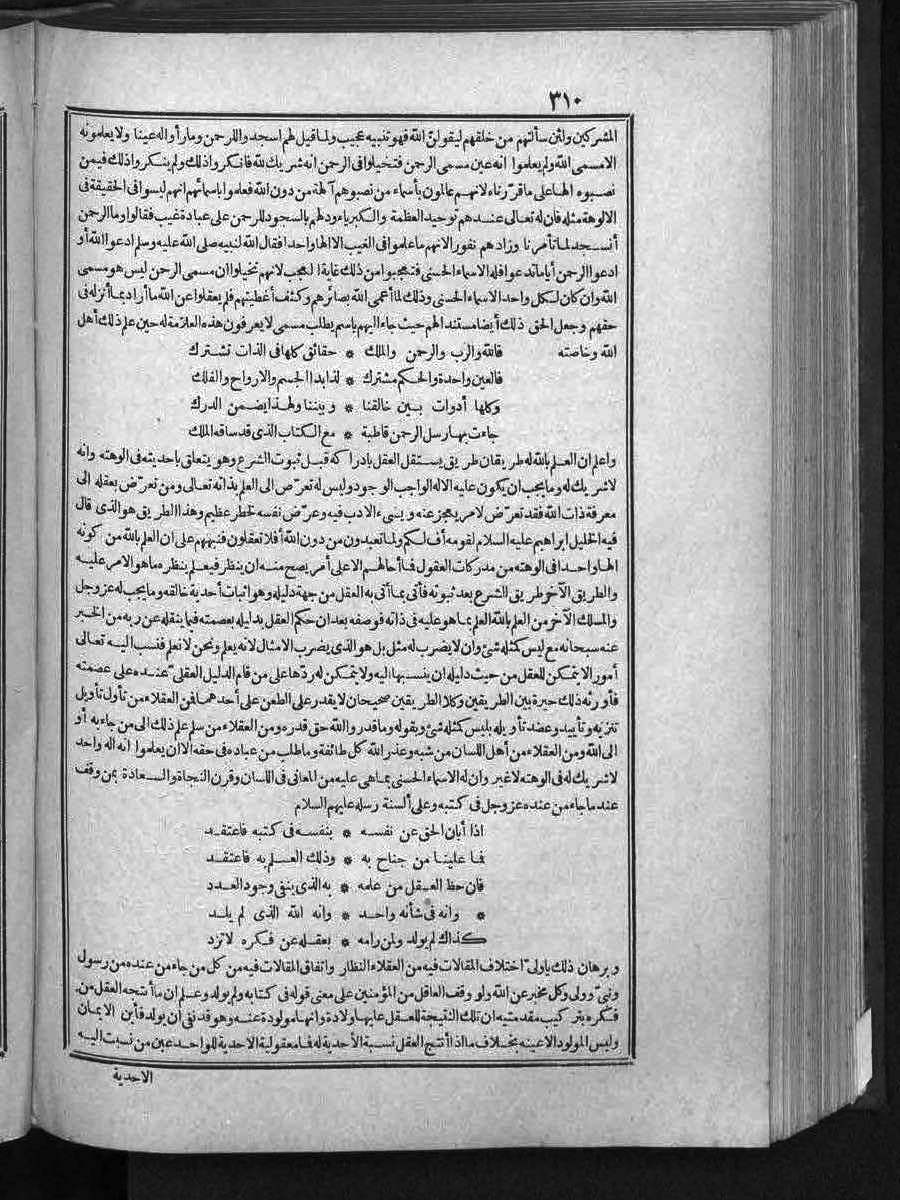 ٣١٠
المشركين ولئن سألتهم من خلقهم ليقولن الله فهو تنبيه عجيب ولما قيل لهم اسجدوا للرحمن وما رأوا له عينا ولا يعلمونه
الامسمى الله ولم يعلموا انه عين مسمى الرحمن فتخيلوا فى الرحمن انه شريك لله فانكروا ذلك ولم ينكروا ذلك فيمن
نصبوه الها على ما قررناه لانهم عالمون بأسماء من نصبوهم آلهة من دون الله فعلموا باسمائهم انهم ليسوا فى الحقيقة فى
الالوهة مثله فان له تعالى عندهم توحيد العظمة والكبرياء ودلهم بالسجود للرحمن على عبادة غيب فقالوا وما الرحمن
أنسجد لما تأمرنا وزادهم نفورا لانهم ما علموا فى الغيب الا الها واحدا فقال الله لنبيه صلى الله عليه وسلم ادعوا الله أو
ادعوا الرحمن أياما تدعوا فله الاسماء الحسنى فتعجبوا من ذلك غاية العجب لانهم تخيلوا ان مسمى الرحمن ليس هو مسمى
الله وان كان لكل واحد الاسماء الحسنى وذلك لما أعمى الله بصائرهم وكثف أغطيتهم فلم يعقلوا عن الله ما أراد بما أنزله فى
حقهم وجعل الحق ذلك أيضا مستندا لهم حيث جاء اليهم باسم يطلب مسمى لا يعرفون هذه العلامة له حين علم ذلك أهل
الله وخاصته فالله والرب والرحمن والملك * حقائق كلها فى الذات تشترك
فالعين واحدة والحكم مشترك * لذا بدا الجسم والارواح والفلك
وكلها أدوات بين خالقنا * وبيننا ولهذا يضمن الدرك
جاءت بها رسل الرحمن قاطبة * مع الكتاب الذى قد ساقه الملك
واعلم ان العلم بالله له طريقان طريق يستقل العقل بادراكه قبل ثبوت الشرع وهو يتعلق باحديته فى الوهته وانه
لا شريك له وما يجب ان يكون عليه الاله الواجب الوجود وليس له تعرّض الى العلم بذاته تعالى ومن تعرّض بعقله الى
معرفة ذات الله فقد تعرّض لامر يعجز عنه ويسىء الادب فيه وعرّض نفسه لخطر عظيم وهذا الطريق هو الذى قال
فيه الخليل ابراهيم عليه السلام لقومه أف لكم ولما تعبدون من دون الله أفلا تعقلون فنبههم على ان العلم بالله من كونه
الها واحدا فى الوهته من مدركات العقول فما أحالهم الا على أمر يصح منه ان ينظر فيعلم بنظره ما هو الامر عليه
والطريق الآخر طريق الشرع بعد ثبوته فأتى بما أتى به العقل من جهة دليله وهو اثبات أحدية خالقه وما يجب له عز وجل
والمسلك الآخر من العلم بالله العلم بما هو عليه فى ذاته فوصفه بعد ان حكم العقل بدليله بعصمته فيما ينقله عن ربه من الخبر
عنه سبحانه مع ليس كمثله شئ وان لا يضرب له مثل بل هو الذى يضرب الامثال لانه يعلم ونحن لا نعلم فنسب اليه تعالى
أمورا لا يتمكن للعقل من حيث دليله ان ينسبها اليه ولا يتمكن له ردّها على من قام الدليل العقلىّ عنده على عصمته
فأورثه ذلك حيرة بين الطريقين وكلا الطريقين صحيحان لا يقدر على الطعن على أحدهما فمن العقلاء من تأول تأويل
تنزيه وتأييد وعضد تأويله بليس كمثله شئ وبقوله وما قدروا الله حق قدره ومن العقلاء من سلم علم ذلك الى من جاء به أو
الى الله ومن العقلاء من أهل اللسان من شبه وعذر الله كل طائفة وما طلب من عباده فى حقه الا ان يعلموا انه اله واحد
لا شريك له فى الوهته لا غير وان له الاسماء الحسنى بما هى عليه من المعانى فى اللسان وقرن النجاة والسعادة بمن وقف
عند ما جاء من عنده عز وجل فى كتبه وعلى ألسنة رسله عليهم السلام
اذا أبان الحق عن نفسه * بنفسه فى كتبه فاعتقد
فما علينا من جناح به * وذلك العلم به فاعتقد
فان حظ العقل من علمه * به الذى ينفى وجود العدد
* وانه فى شأنه واحد * وانه الله الذى لم يلد
كذاك لم يولد ولمن رامه * بعقله عن فكره لا تزد
وبرهان ذلك ياولىّ اختلاف المقالات فيه من العقلاء النظار واتفاق المقالات فيه من كل من جاء من عنده من رسول
ونبىّ وولى وكل مخبر عن الله ولو وقف العاقل من المؤمنين على معنى قوله فى كتابه ولم يولد وعلم ان ما أنتجه العقل من
فكره بتركيب مقدمتيه ان تلك النتيجة للعقل عليها ولادة وانها مولودة عنه وهو قد نفى أن يولد فأين الايمان
وليس المولود الا عينه بخلاف ما اذا أنتج العقل نسبة الأحدية له فما معقولية الاحدية للواحد عين من نسبت اليه
الاحدية